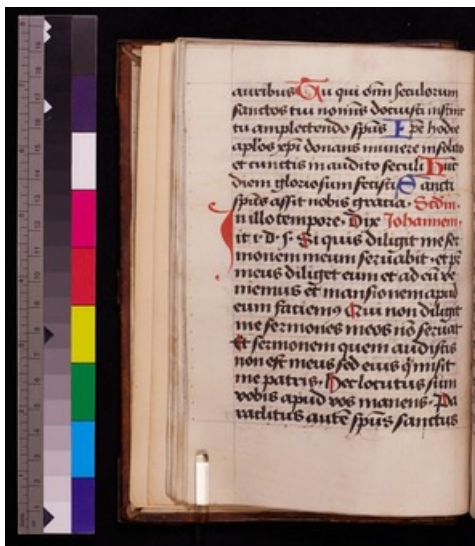 auribus Tu qui om̄i seculorum
sanctos tui nominis docuisti instinc
tu amplectendo spūs Ipse hodie
aplōs xp̄i donans munere insolito
et cunctis inaudito seculi Hunc
diem gloriosum fecisti Sancti
spūs assit nobis gratia. Scdm̄.
In illo tempore. Dixͭ Johannem.
it i. d. s. Si quis diligit me ser
monem meum seruabit. et pr̄
meus diliget eum et ad eū ve
niemus et mansionem apud
eum faciemꝰ Qui non diligit
me sermones meos nō seruat
Et sermonem quem audistis
non est meus sed eius q̄ misit
me patris. Hec locutus sum
vobis apud vos manens. Pa
raclitus autē spūs sanctus